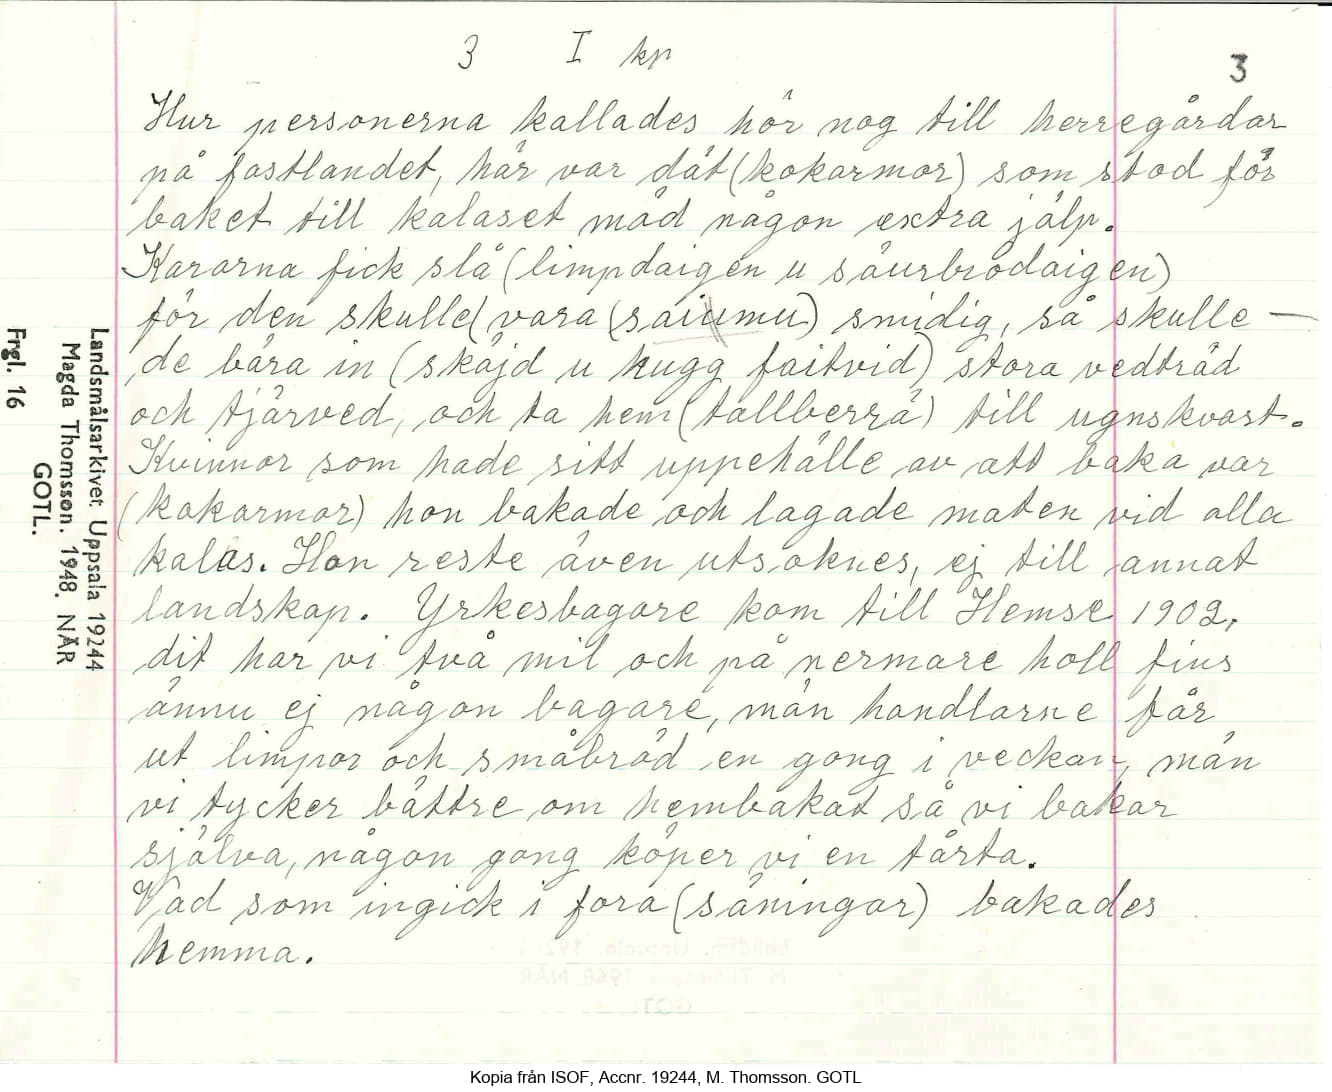 3 I kp
3
Hur personerna kallades hör nog till herregårdar
på fastlandet, här var dät (kokarmor) som stod för
baket till kalaset mäd någon extra jälp.
Kararna fick slå (limpdaigen u säurbrödaigen)
för den skulle (vara (saiumu) smidig, så skulle —
de bära in (skäjd u hugg faitvid) stora vedträd
och tjärved, och ta hem (tallberrä) till ugnskvast.
Kvinnor som hade sitt uppehälle av att baka var
(kokarmor) hon bakade och lagade maten vid alla
kalas. Hon reste även utsoknes, ej till annat
landskap. Yrkesbagare kom till Hemse 1902,
dit har vi två mil och på nermare holl fins
ännu ej någon bagare, män handlarne får
ut limpor och småbröd en gong i veckan, män
vi tycker bättre om hembakat så vi bakar
själva, någon gong köper vi en tårta.
Vad som ingick i fora (säningar) bakades
hemma.
Landsmålsarkivet Uppsala 19244
Magda Thomsson. 1948. NÄR
GOTL.
Frgl. 16
Kopia från ISOF, Accnr. 19244, M. Thomsson. GOTL